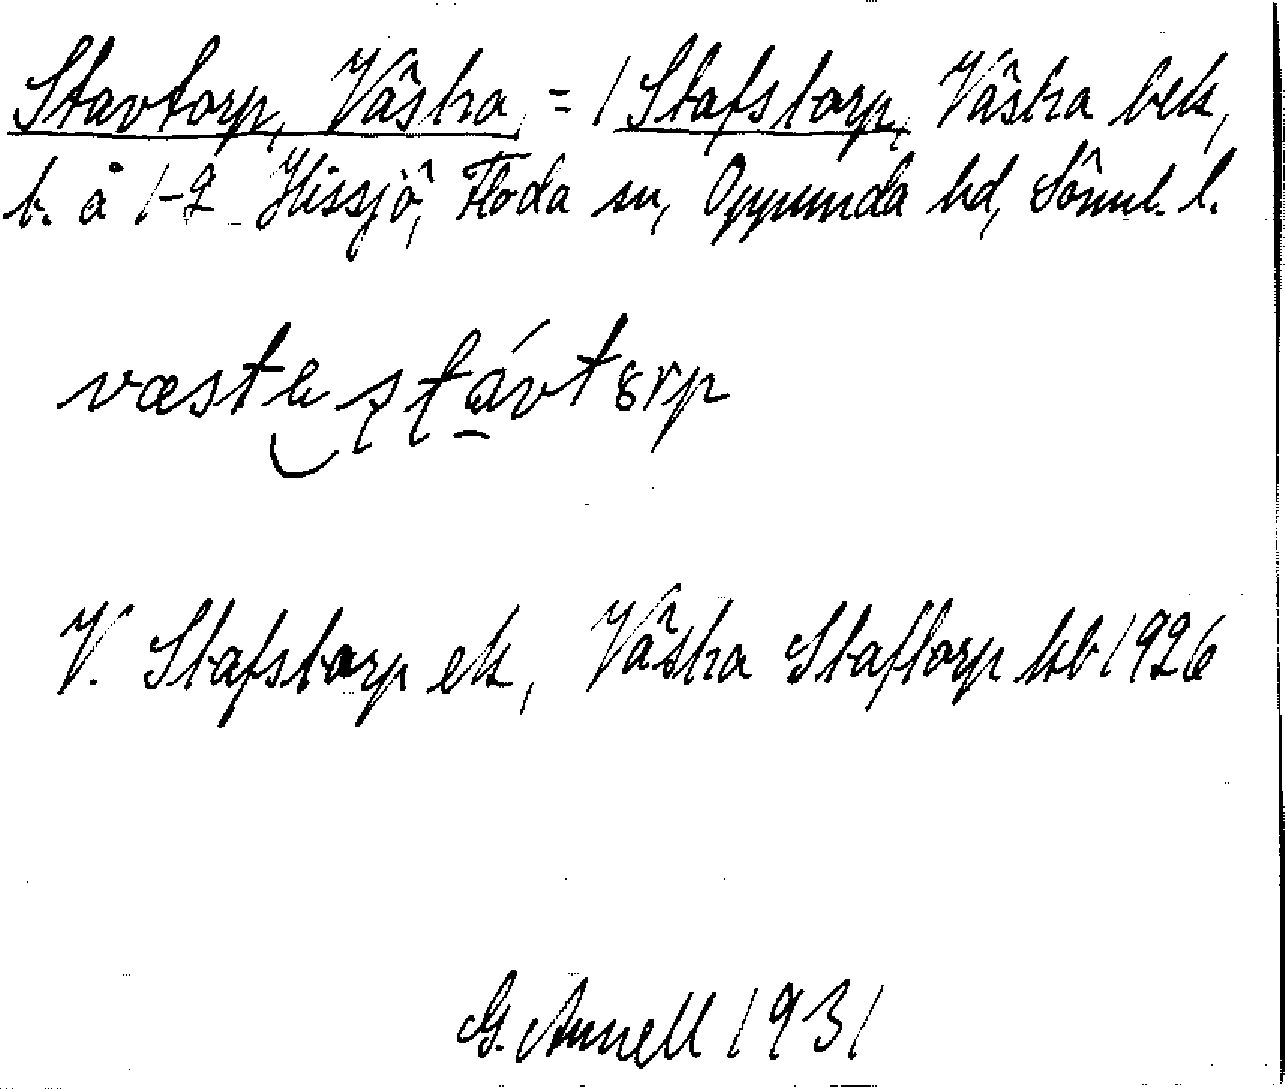 Stavtorp, Västra, = / Stafstorp, Västra bek,
t. å 1-2 Hissjö, Floda sn, Oppunda hd, Söml. l.
V. Stafstorp ek, Västra Staftorp kb 1926
G. Annell 1931